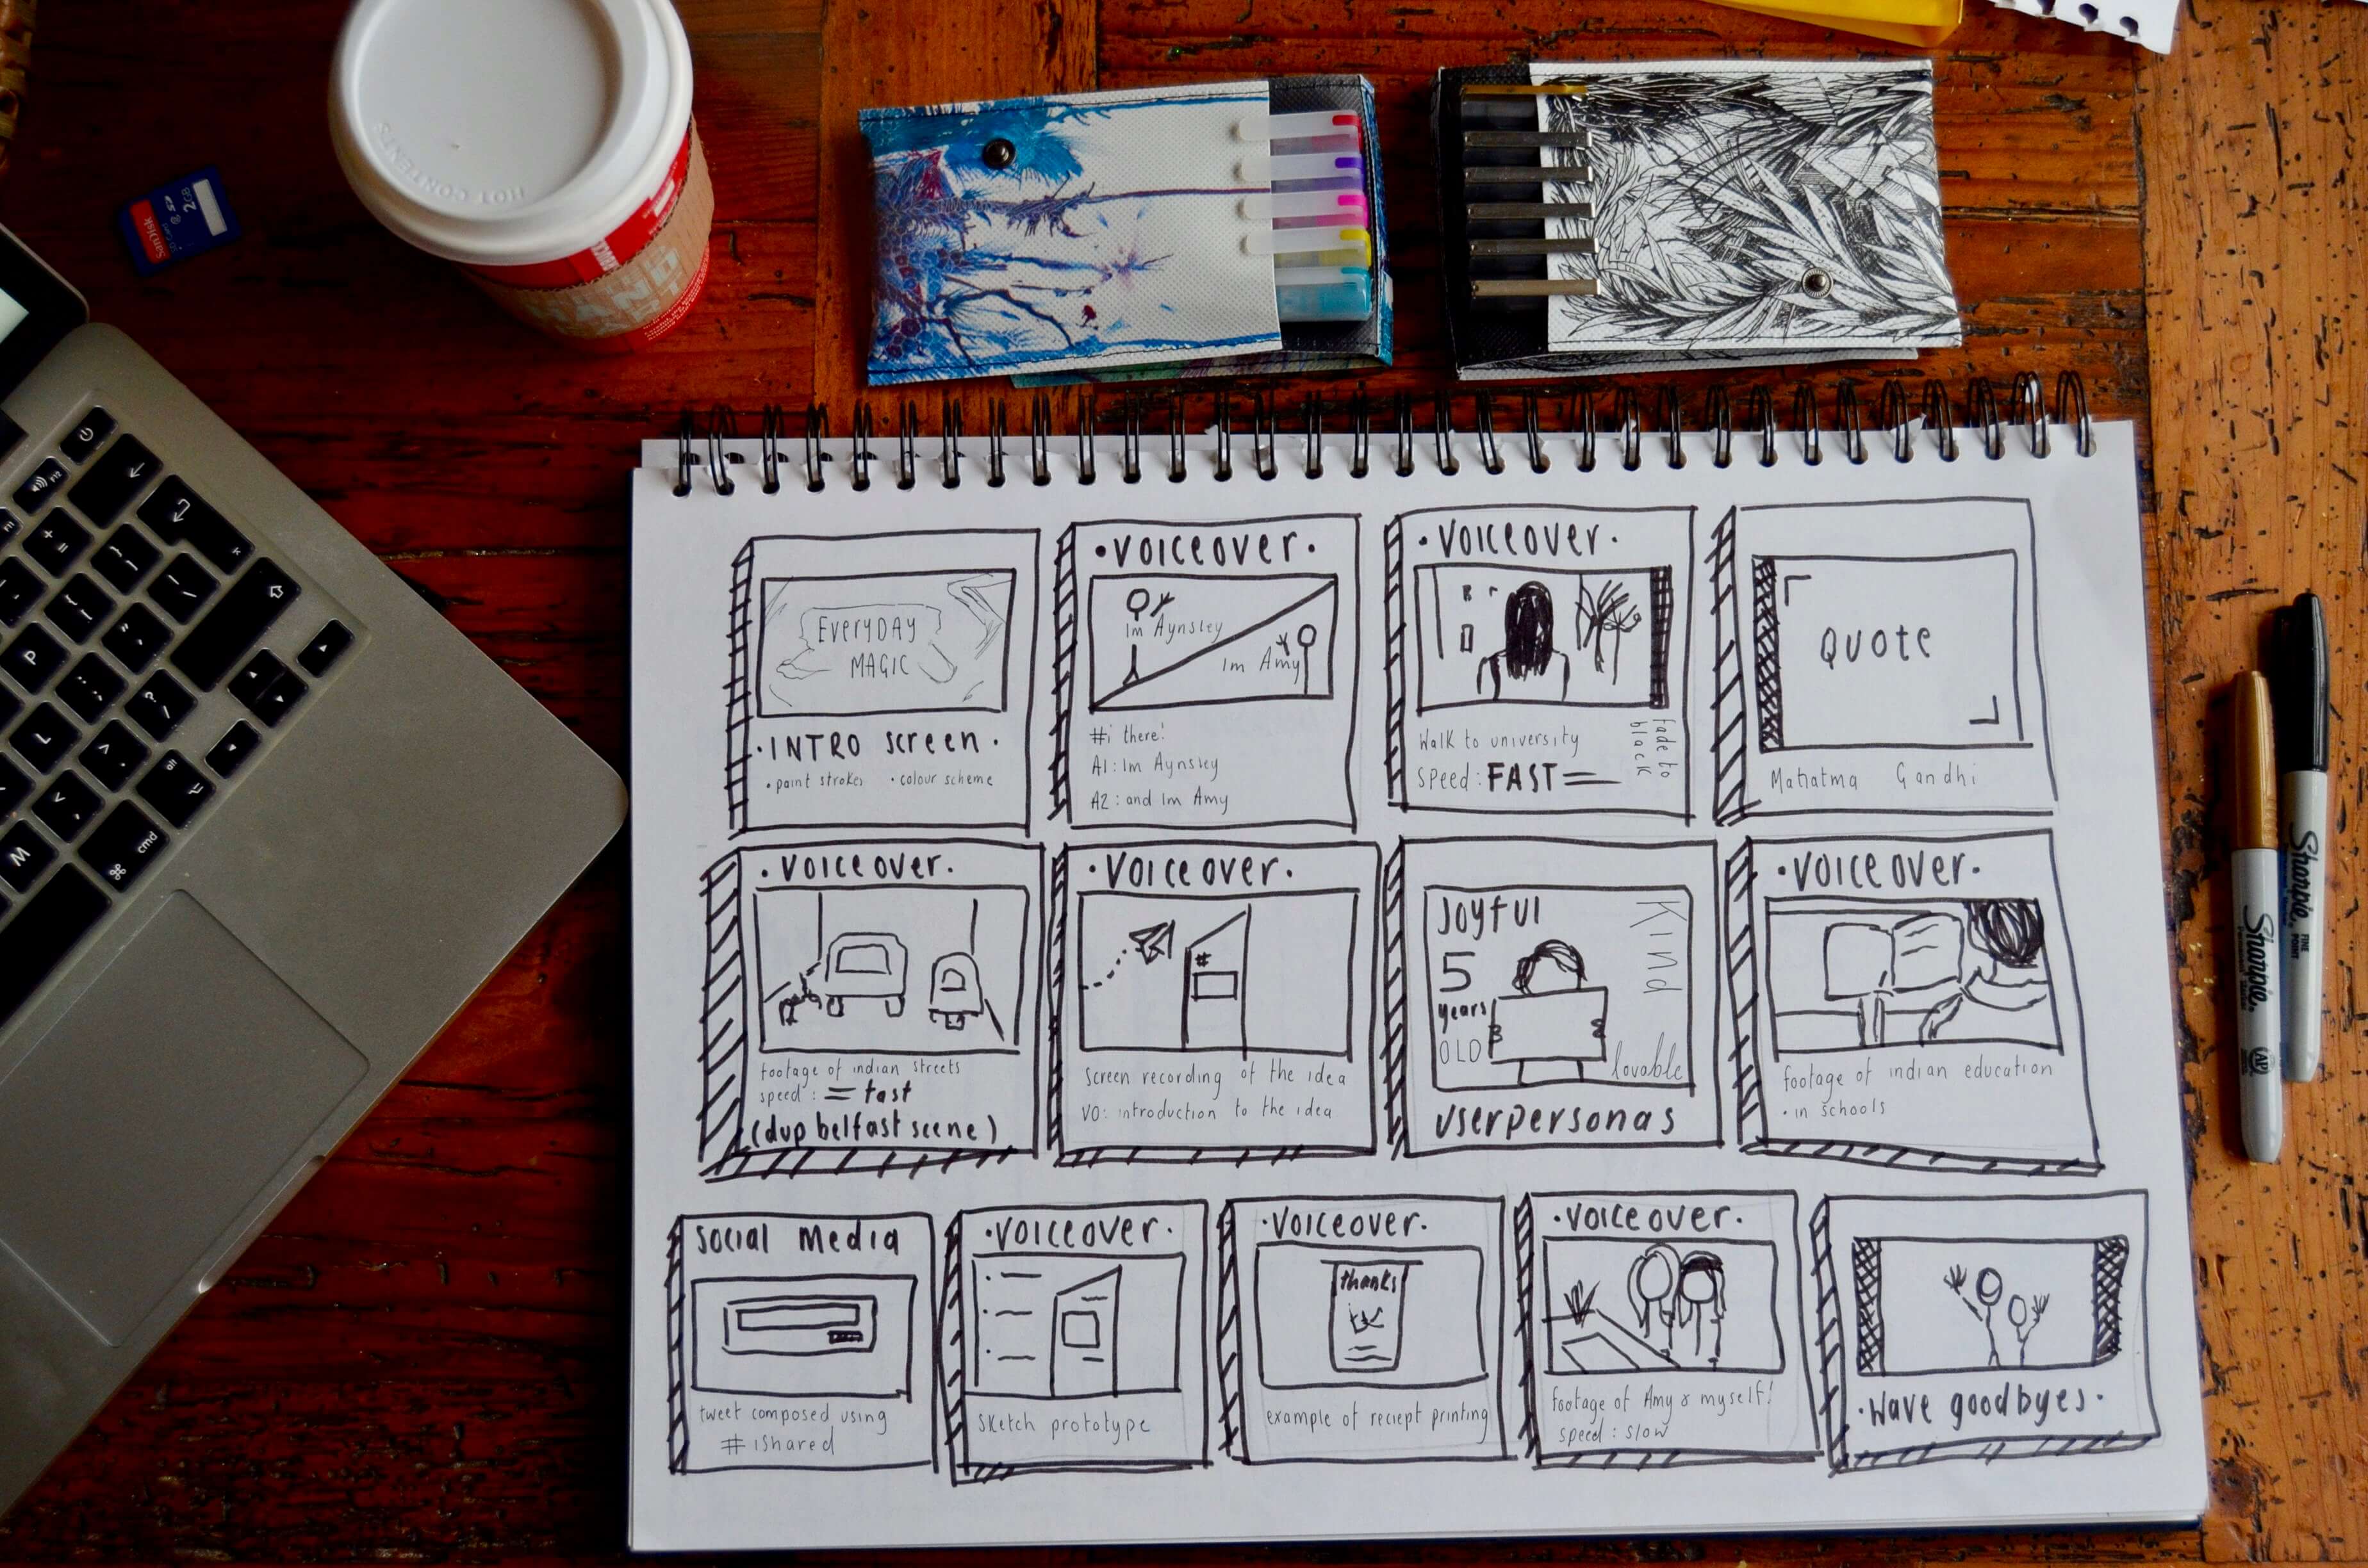 HOT CONTENTS
SanDisk
2GB
EVERYDAY
MAGIC
·INTRO screen·
•paint strokes •colour scheme
•VOICEOVER•
Im Aynsley
Im Amy
Hi there!
A1: Im Aynsley
A2: and Im Amy
·VOICEOVER·
Walk to university
Speed: FAST
fade to
black
QUOTE
Mahatma Gandhi
·VOICEOVER·
footage of indian streets
speed: = fast
(dup belfast scene)
·VOICEOVER·
#
Screen recording of the idea
VO: introduction to the idea
Joyful
5
years
OLD
Kind
lovable
userpersonas
·VOICEOVER·
footage of indian education
• in schools
Social Media
tweet composed using
# iShared
·VOICEOVER·
Sketch prototype
·VOICEOVER·
thanks
example of reciept printing
·VOICEOVER·
footage of Amy & myself!
speed: slow
·Wave goodbyes·
Sharpie.
Sharpie.
FINE
POINT
P
L
M
alt
cmd